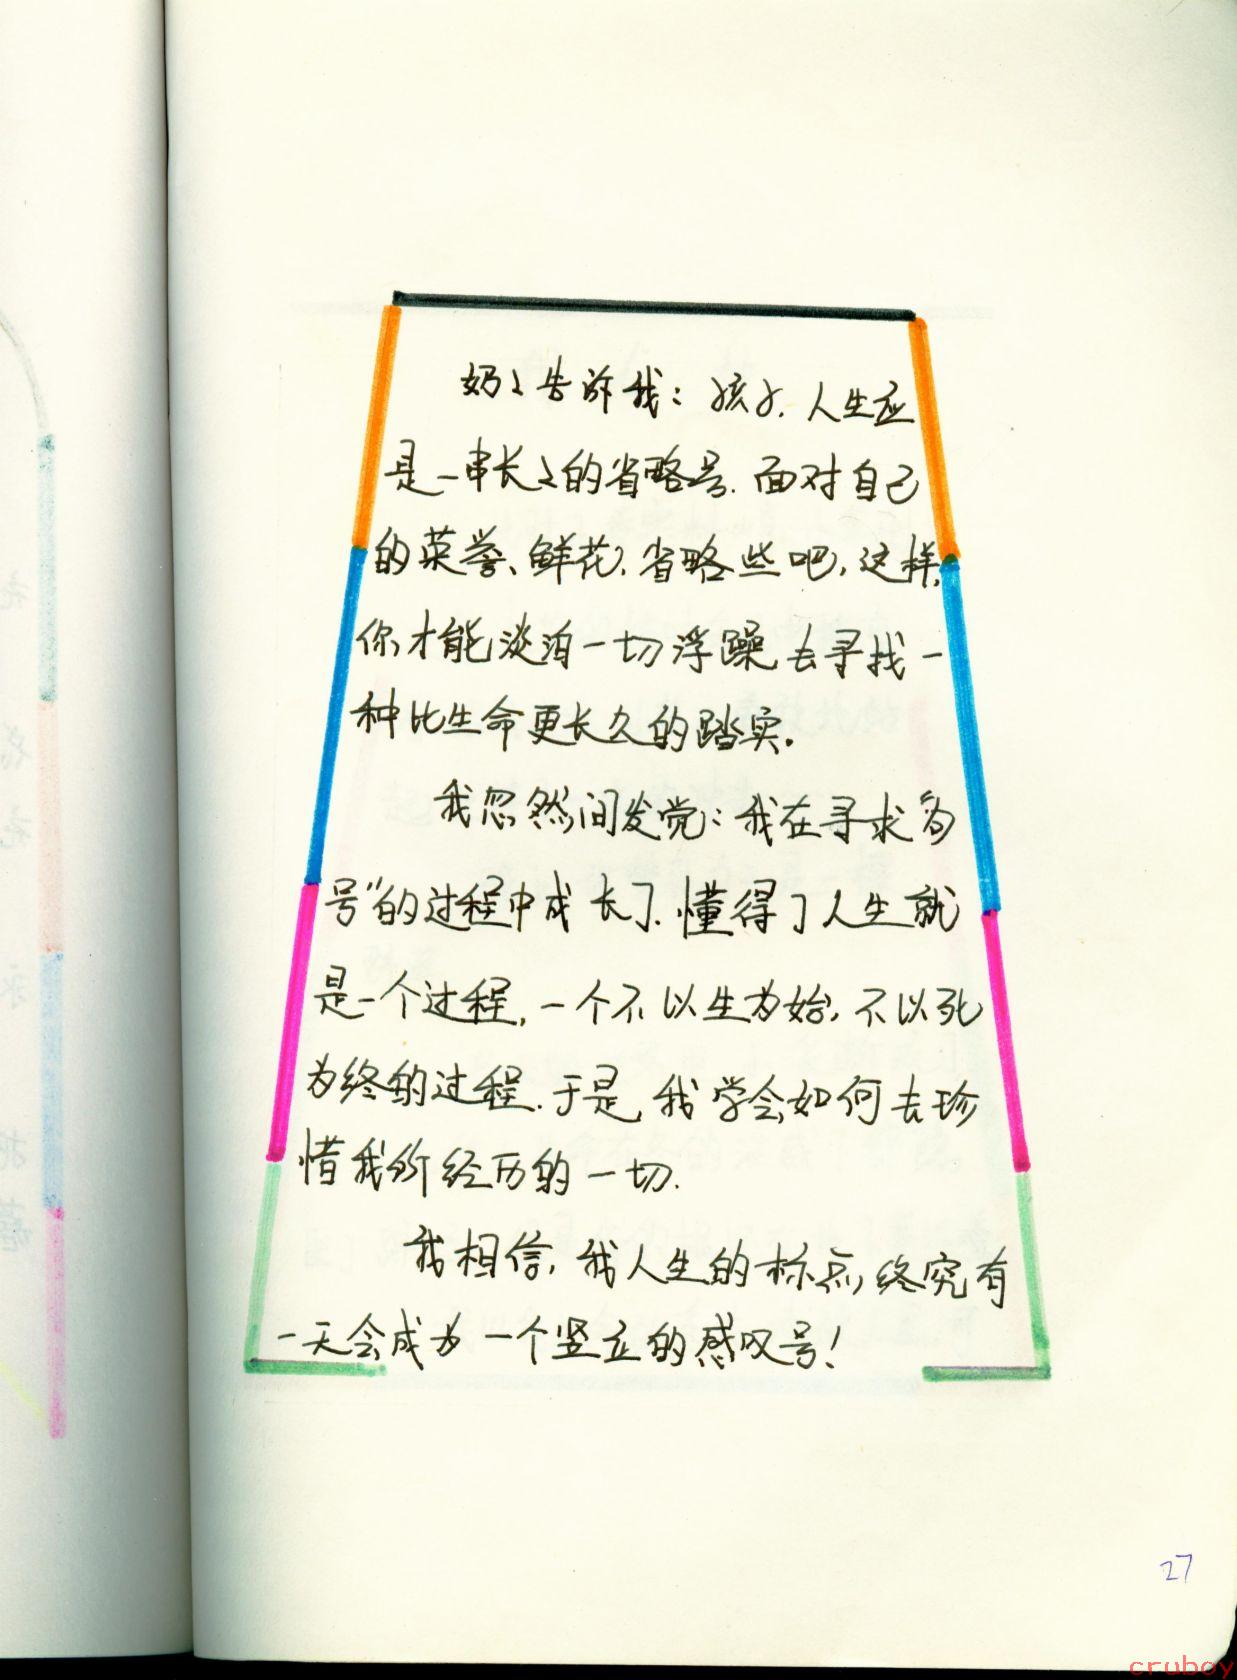 奶々告诉我：孩子，人生应
是一串长々的省略号．面对自己
的荣誉、鲜花，省略些吧，这样，
你才能淡泊一切浮躁，去寻找一
种比生命更长久的踏实．
我忽然间发觉：我在寻求“句
号”的过程中成长了．懂得了人生就
是一个过程，一个不以生为始，不以死
为终的过程．于是，我学会如何去珍
惜我所经历的一切．
我相信，我人生的标点，终究有
一天会成为一个竖立的感叹号！
27
cruboy